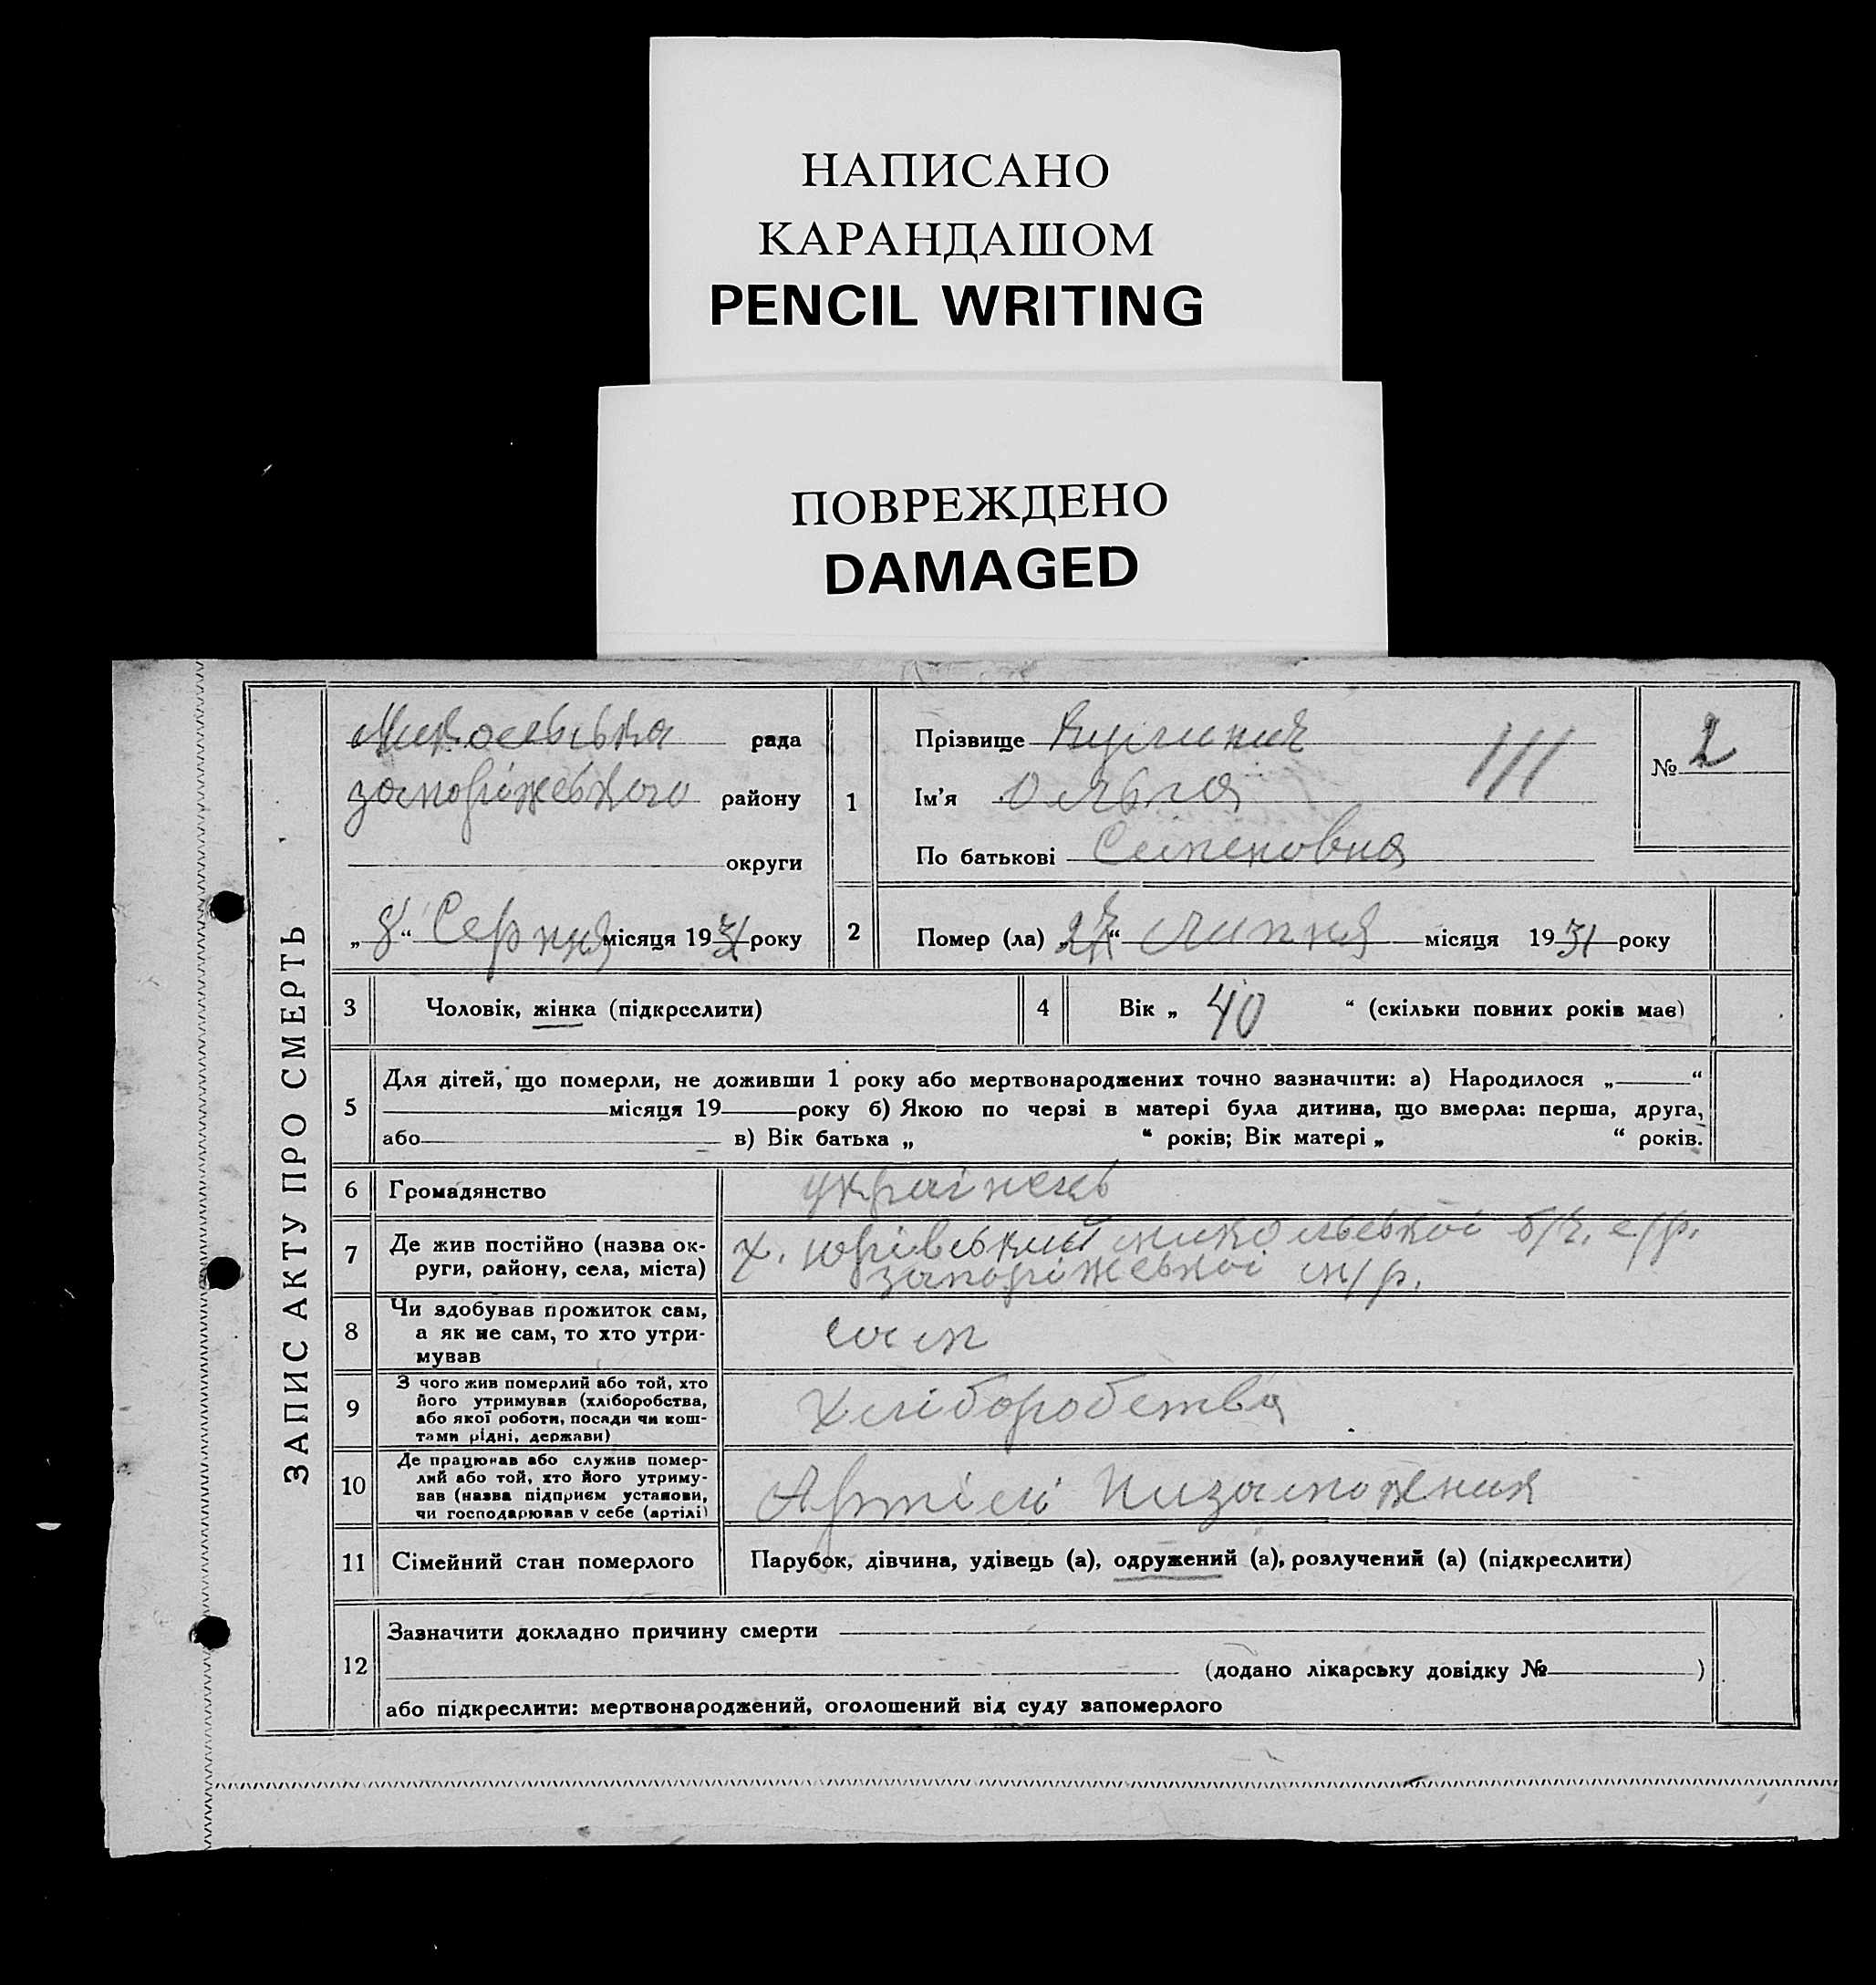 НАПИСАНО
КАРАНДАШОМ
PENCIL WRITING
ПОВРЕЖДЕНО
DAMAGED
ЗАПИС АКТУ ПРО СМЕРТЬ
Микольська рада
запоріжевького району
округи
„8“ Серпня місяця 1931 року
1
Прізвище
Ім’я Ольга
По батькові Сименовна
III
№ 2
2
Помер (ла) „ “ липня місяця 1931 року
3
Чоловік, жінка (підкреслити)
4
Вік „ 40 “ (скільки повних років має)
5
Для дітей, що померли, не доживши 1 року або мертвонароджених точно зазначити: а) Народилося „ “
місяця 19 року б) Якою по черзі в матері була дитина, що вмерла: перша, друга,
або в) Вік батька „ “ років; Вік матері „ “ років.
6
Громадянство українець
7
Де жив постійно (назва ок-
руги, району, села, міста)
х. юрівський микольської б/ч. с/р.
запоріжевької м/р.
8
Чи здобував прожиток сам,
а як не сам, то хто утри-
мував
сам
9
З чого жив померлий або той, хто
його утримував (хліборобства,
або якої роботи, посади чи кош-
тами рідні, держави)
Хліборобства
10
Де працював або служив помер-
лий або той, хто його утриму-
вав (назва підприєм установи,
чи господарював у себе (артілі)
Артілі Низаможник
11
Сімейний стан померлого
Парубок, дівчина, удівець (а), одружений (а), розлучений (а) (підкреслити)
12
Зазначити докладно причину смерти
(додано лікарську довідку № )
або підкреслити: мертвонароджений, оголошений від суду запомерлого